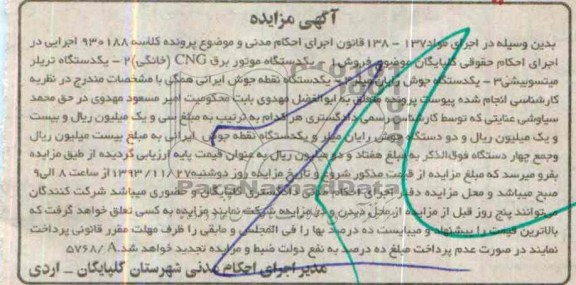 آگهی مزایده
بدین وسیله در اجرای مواد۱۳۷ - ۱۳۸ قانون اجرای احکام مدنی و موضوع پرونده کلاسه ۹۳۰۱۸۸ اجرایی در
اجرای احکام حقوقی گلپایگان موضوع فروش۱ - یکدستگاه موتور برق CNG (خانگی)۲ - یکدستگاه تریلر
میتسوبیشی۳ - یکدستگاه جوش رایان میلر۴ - یکدستگاه نقطه جوش ایرانی همگی با مشخصات مندرج در نظریه
کارشناسی انجام شده پیوست پرونده متعلق به ابوالفضل مهدوی بابت محکومیت امیر مسعود مهدوی در حق محمد
سیاوشی عنایتی که توسط کارشناس رسمی دادگستری هر کدام به ترتیب به مبلغ سی و یک میلیون ریال و بیست
و یک میلیون ریال و دو دستگاه جوش رایان میلر و یکدستگاه نقطه جوش ایرانی به مبلغ بیست میلیون ریال
وجمع چهار دستگاه فوق الذکر به مبلغ هفتاد و دو میلیون ریال به عنوان قیمت پایه ارزیابی گردیده از طبق مزایده
بفرو میرسد که مبلغ مزایده از قیمت مذکور شروع و تاریخ مزایده روز دوشنبه۱۳۹۳/۱۱/۲۷ از ساعت ۸ الی۹
صبح میباشد و محل مزایده دفتر اجرای احکام مدنی دادگستری گلپایگان و حضوری میباشد شرکت کنندگان
میتوانند پنج روز قبل از مزایده از محل دیدن و در مزایده شرکت نمایند مزایده به کسی تعلق خواهد گرفت که
بالاترین قیمت را پیشنهاد و میبایست ده درصد بها را فی المجلس و مابقی را ظرف مهلت مقرر قانونی پرداخت
نمایند در صورت عدم پرداخت مبلغ ده درصد به نفع دولت ضبط و مزایده تجدید خواهد شد.۵۷۶۸/A
مدیر اجرای احکام مدنی شهرستان گلپایگان _ اردی